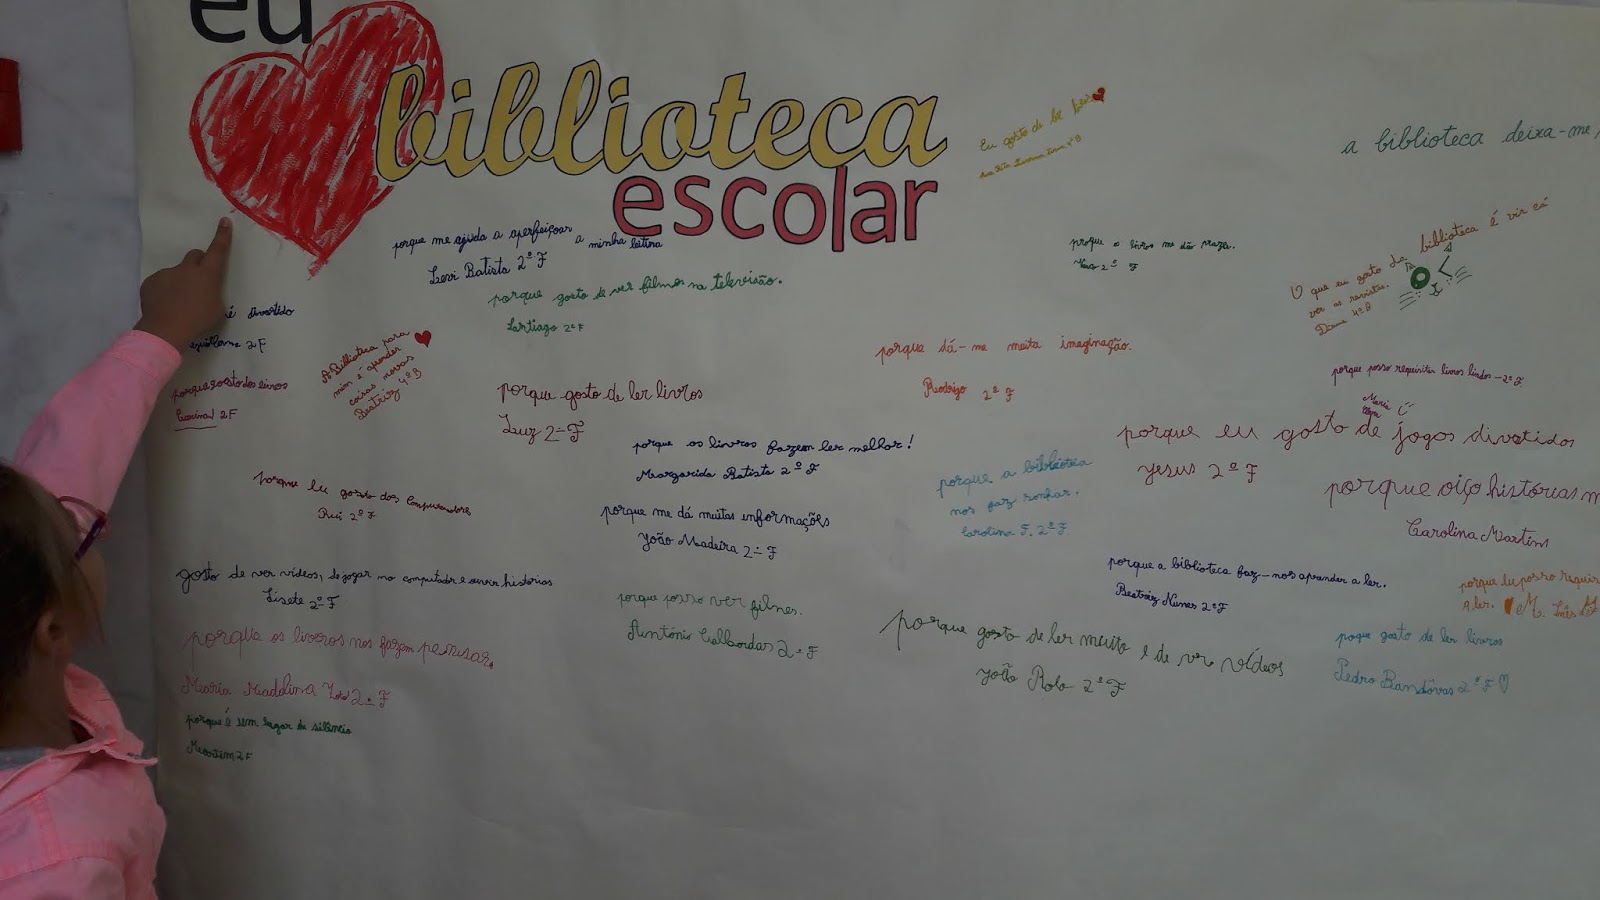 eu
biblioteca
escolar
Eu gosto de ler
a biblioteca deixa-me
porque me ajuda a aperfeiçoar a minha leitura
Levi Batista 2º F
porque o livros me dão
2º F
O que eu gosto da biblioteca é vir cá
ver as revistas.
4º B
porque gosto de ver filmes na televisão.
Santiago 2º F
é divertido
2 F
A Biblioteca para
mim é aprender
coisas novas
Beatriz 4º B
porque gosto dos livros
2 F
porque dá-me muita imaginação.
Rodrigo 2º F
porque posso requisitar livros lindos - 2º F
Maria
porque gosto de ler livros
Luz 2º F
porque eu gosto de jogos divertidos
Yesus 2º F
porque os livros fazem ler melhor!
Margarida Batista 2º F
porque a biblioteca
nos faz sonhar.
Carolina F. 2º F
porque oiço histórias
Carolina Martins
porque eu gosto dos computadores
Rui 2º F
porque me dá muitas informações
João Madeira 2º F
gosto de ver vídeos, de jogar no computador e ouvir histórias
Lisete 2º F
porque a biblioteca faz-nos aprender a ler.
Beatriz Nunes 2º F
porque eu posso
A ler. M. Inês
porque posso ver filmes.
António 2º F
porque gosto de ler muito e de ver vídeos
João Rolo 2º F
poque gosto de ler livros
Pedro 2º F
porqua os livros nos fazem pensar.
Maria Madalina 2º F
porque é um lugar de silêncio
2 F